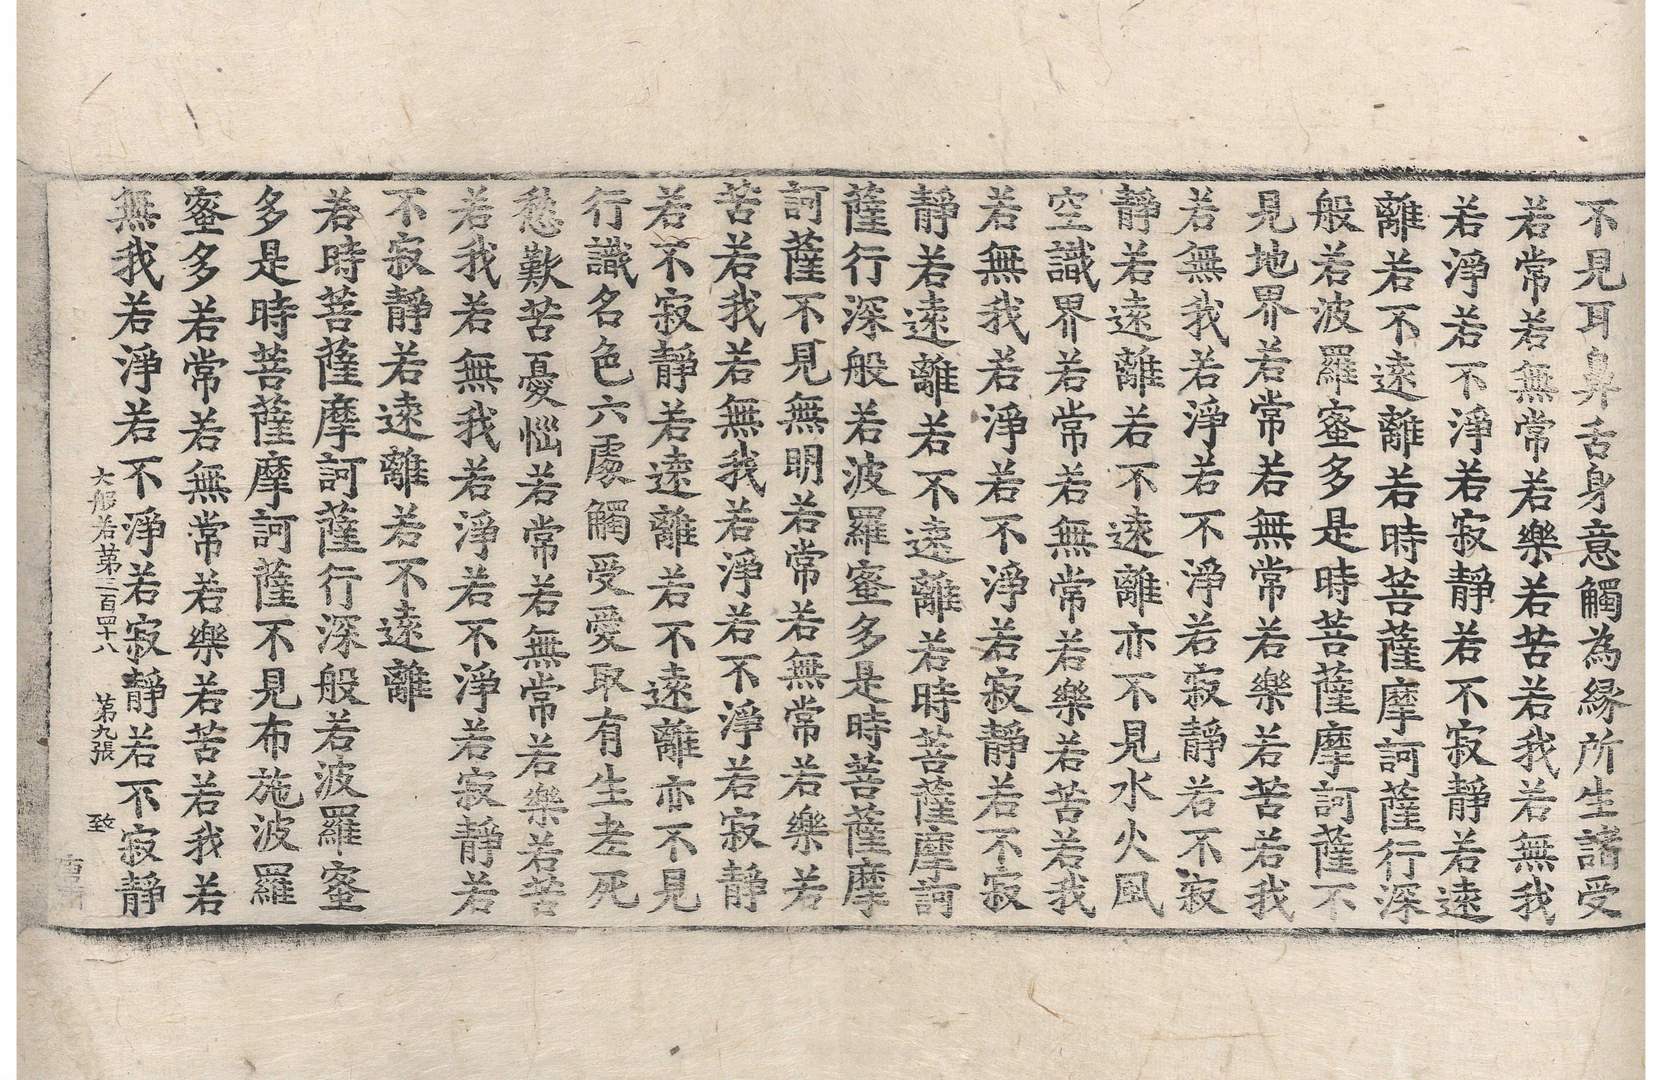 不見耳鼻舌身意觸為緣所生諸受
若常若無常若樂若苦若我若無我
若淨若不淨若寂靜若不寂靜若遠
離若不遠離若時菩薩摩訶薩行深
般若波羅蜜多是時菩薩摩訶薩不
見地界若常若無常若樂若苦若我
若無我若淨若不淨若寂靜若不寂
靜若遠離若不遠離亦不見水火風
空識界若常若無常若樂若苦若我
若無我若淨若不淨若寂靜若不寂
靜若遠離若不遠離若時菩薩摩訶
薩行深般若波羅蜜多是時菩薩摩
訶薩不見無明若常若無常若樂若
苦若我若無我若淨若不淨若寂靜
若不寂靜若遠離若不遠離亦不見
行識名色六處觸受愛取有生老死
愁歎苦憂惱若常若無常若樂若苦
若我若無我若淨若不淨若寂靜若
不寂靜若遠離若不遠離
若時菩薩摩訶薩行深般若波羅蜜
多是時菩薩摩訶薩不見布施波羅
蜜多若常若無常若樂若苦若我若
無我若淨若不淨若寂靜若不寂靜
大般若第三百四十八 第九張 致